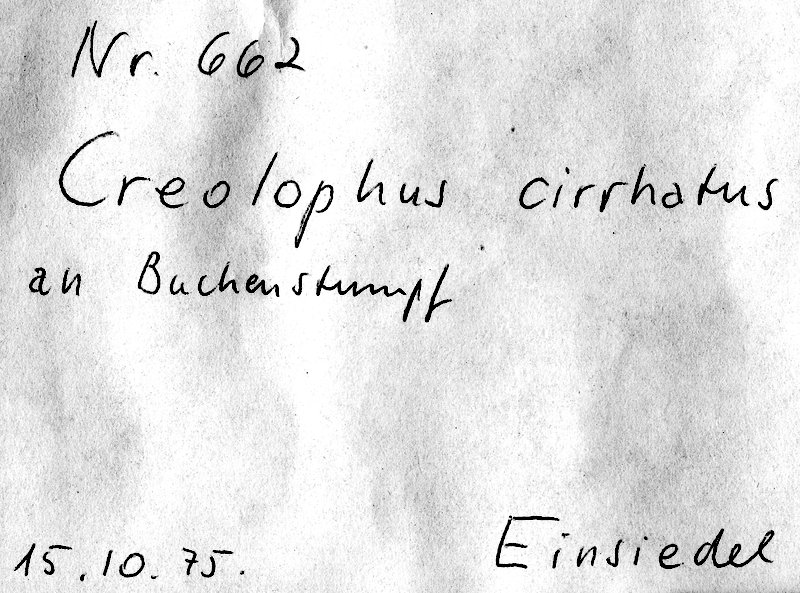 Nr. 662
Creolophus cirrhatus
an Buchenstumpf
15.10.75. Einsiedel